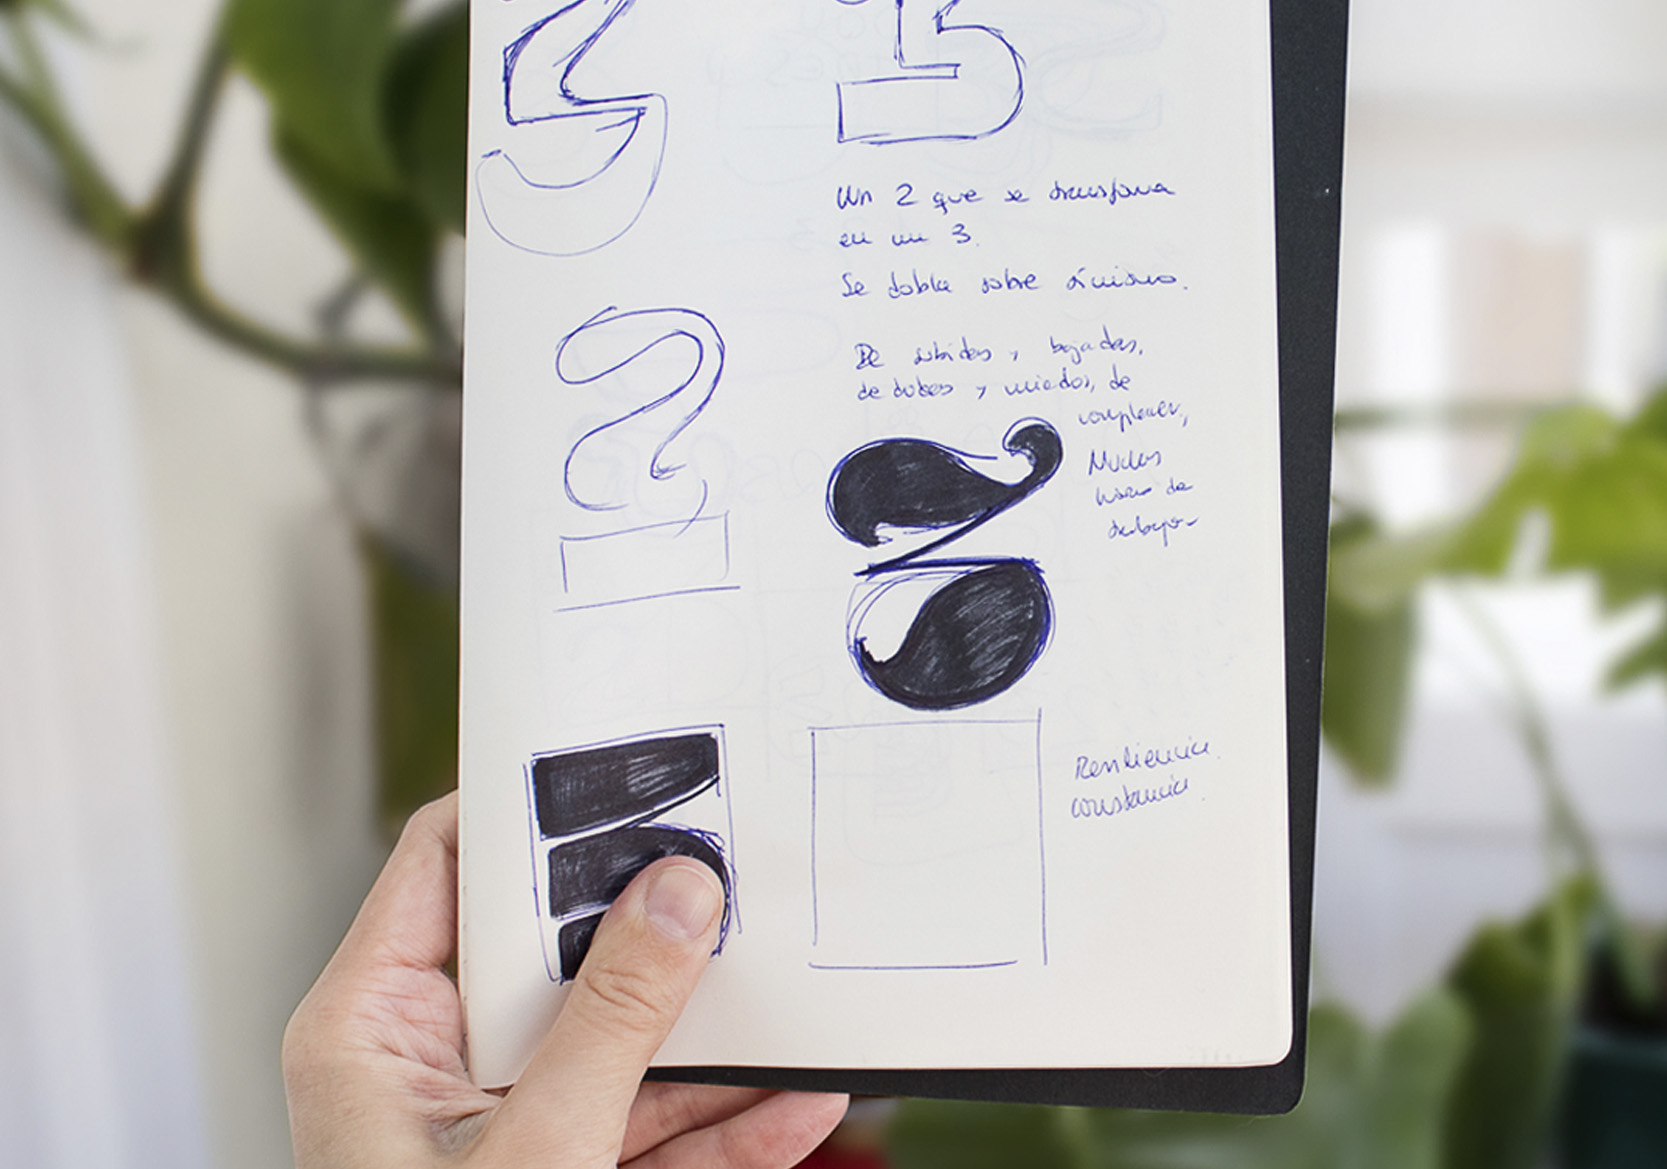 Un 2 que se transforma
en un 3.
Se dobla sobre sí mismo.
De subidas y bajadas,
de dudas y miedos, de
Muchas
horas de
dibujo
Resiliencia.
constancia.